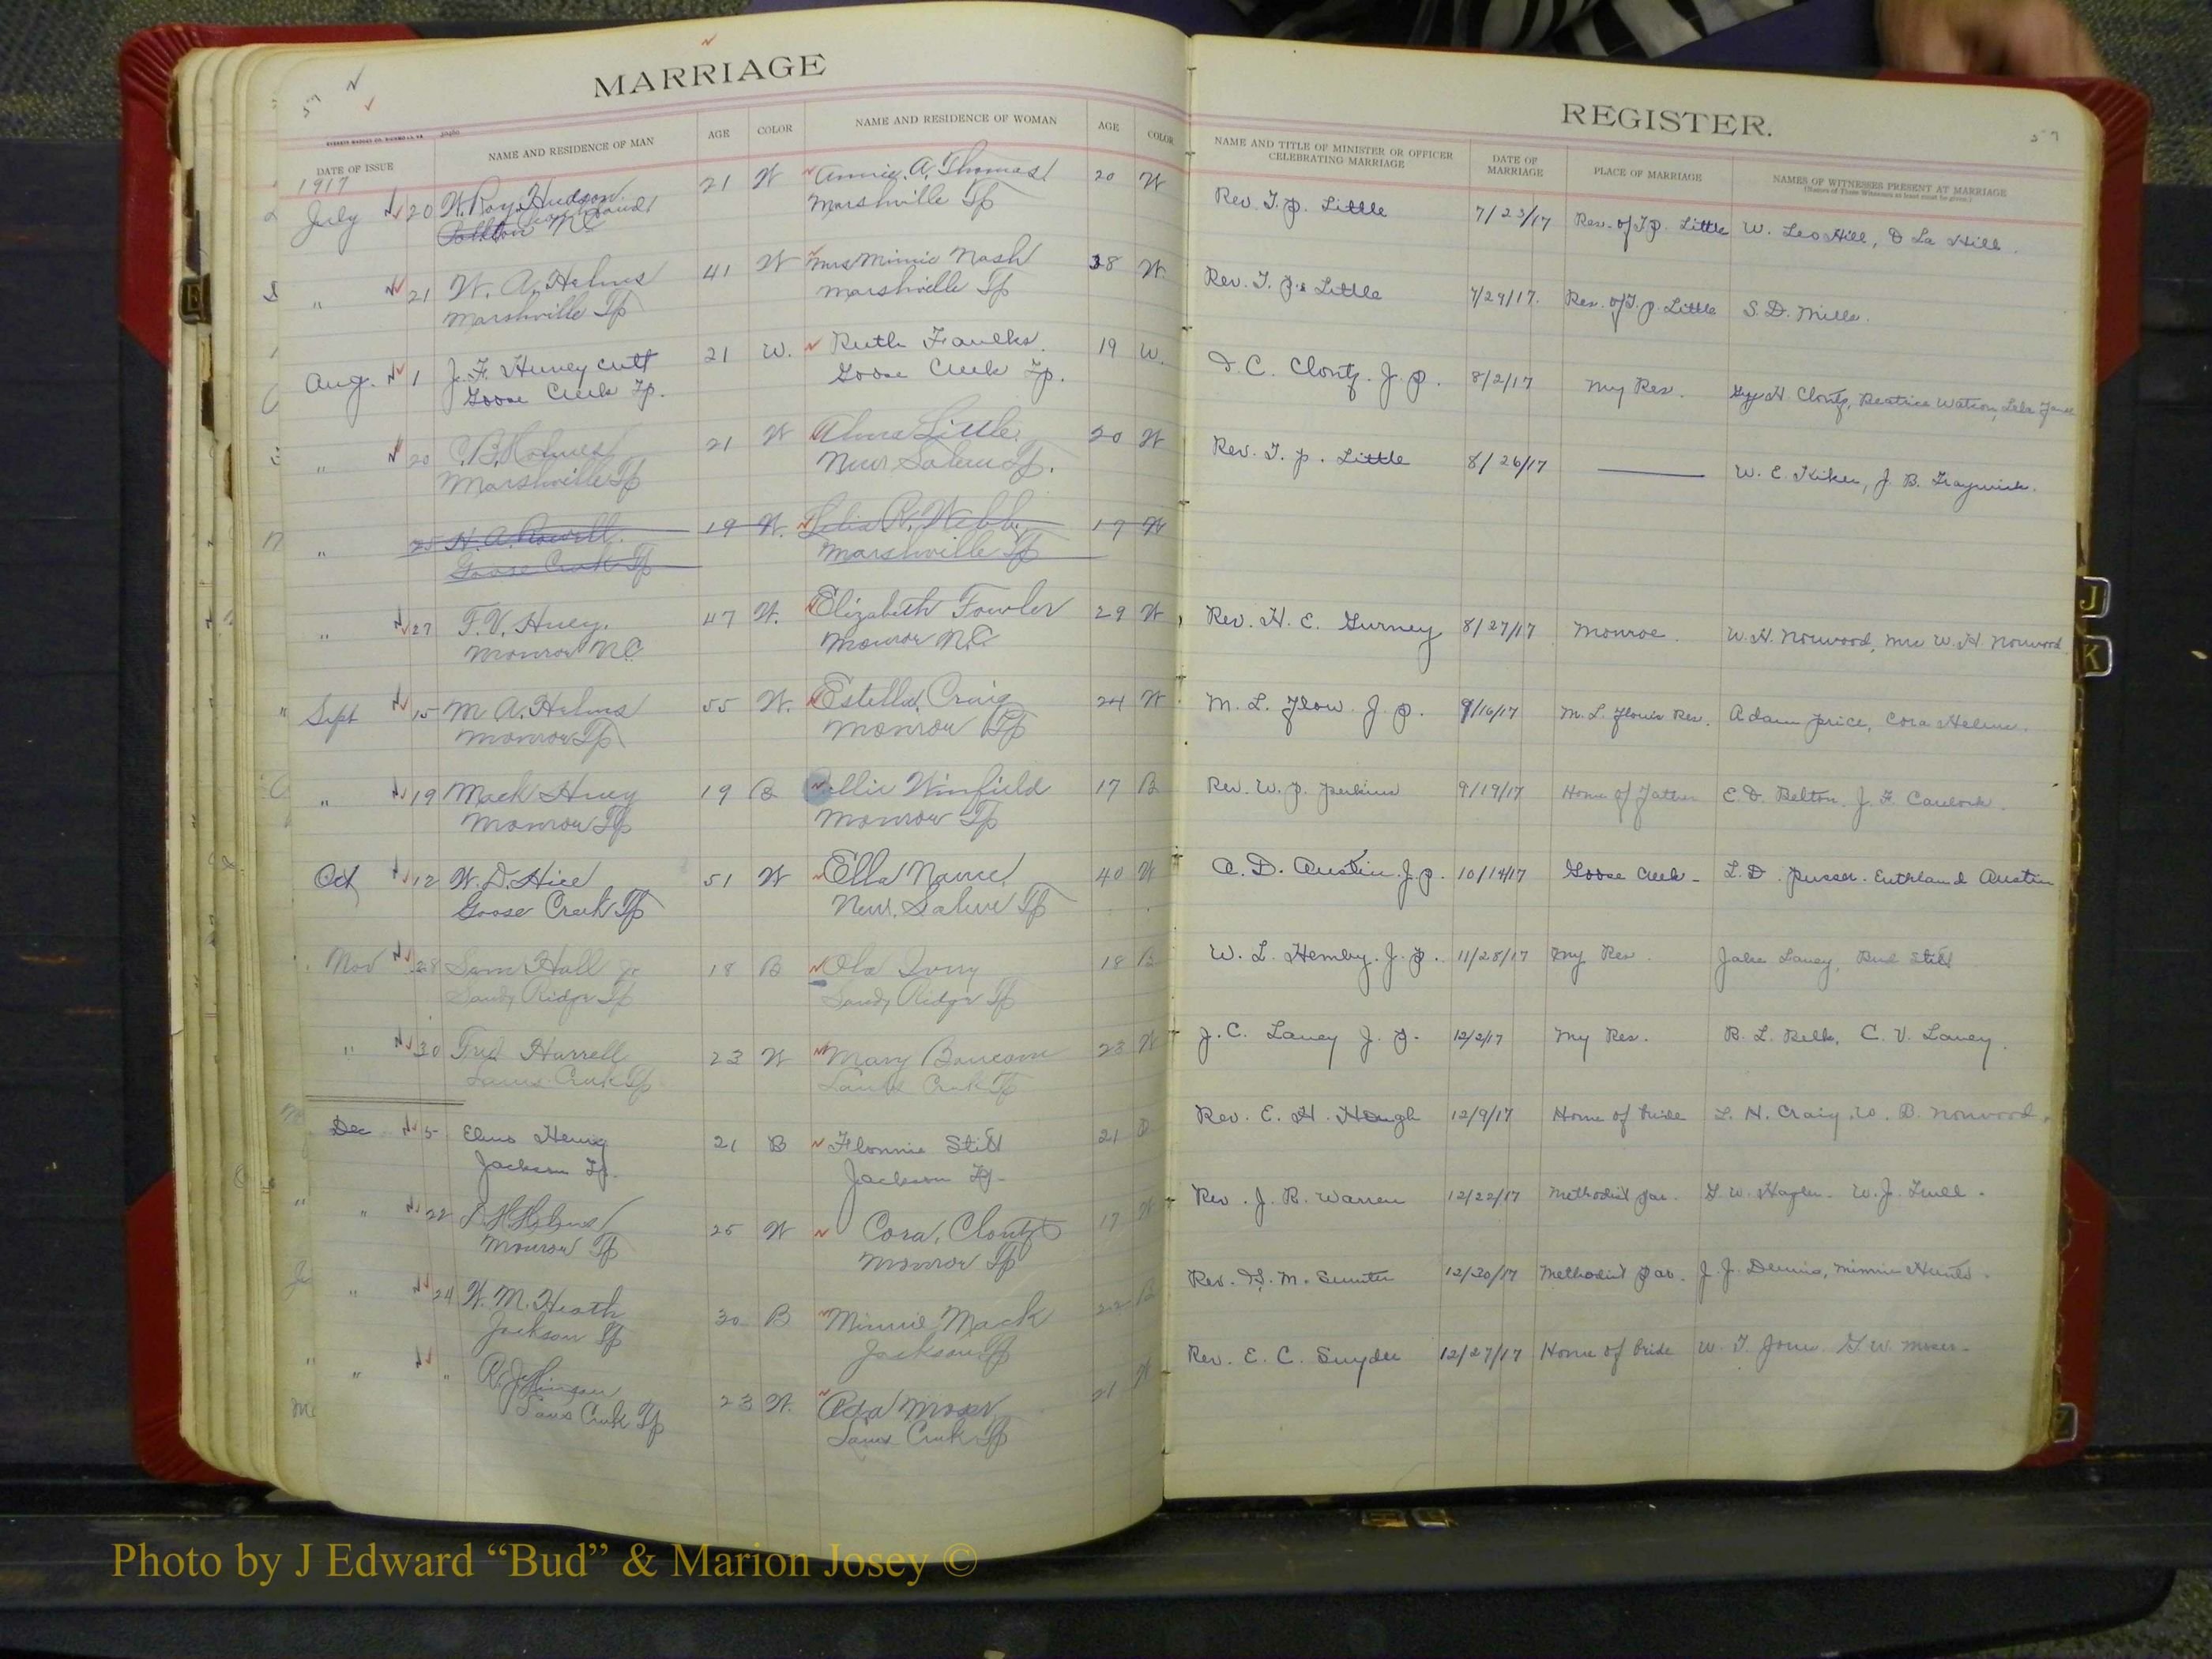 MARRIAGE
57
DATE OF ISSUE NAME AND RESIDENCE OF MAN AGE COLOR NAME AND RESIDENCE OF WOMAN AGE COLOR
1917
July 20 W. Roy Hudson 21 W Annie A. Thomas 20 W
N.C. Marshville Tp
" 21 W. A. Helms 41 W Mrs Minnie Nash 38 W.
Marshville Tp Marshville Tp
Aug. 1 J. F. Huneycutt 21 W. Ruth Faulks. 19 W.
Goose Creek Tp. Goose Creek Tp.
" 20 C. B. 21 W Alma Little 20 W
Marshville Tp New Salem Tp.
" 25 H. A. 19 W. R. Webb 19 W
Goose Creek Tp Marshville Tp
" 27 F. V. Huey. 47 W. Elizabeth Fowler 29 W
Monroe N.C. Monroe N.C.
Sept 15 M. A. Helms 55 W. Estella Craig 24 W
Monroe Tp Monroe Tp
" 19 Mack Huey 19 B Winfield 17 B
Monroe Tp Monroe Tp
Oct 12 W. D. Hill 51 W Ella Nance 40 W
Goose Creek Tp New Salem Tp
Nov 28 Sam Hall Jr 18 B Ola Ivory 18 B
Sandy Ridge Tp Sandy Ridge Tp
" 30 Fred Harrell 23 W Mary Baucom 23 W
Lanes Creek Tp Lanes Creek Tp
Dec 5 21 B Flonnie Stitt 21 B
Jackson Tp. Jackson Tp.
" 22 Helms 25 W Cora Clontz 17 W
Monroe Tp Monroe Tp
" 24 W. M. Heath 30 B Minnie Mack 22 B
Jackson Tp Jackson Tp
" " 23 W. Moser 21 W
Lanes Creek Tp Lanes Creek Tp
REGISTER.
57
NAME AND TITLE OF MINISTER OR OFFICER CELEBRATING MARRIAGE DATE OF MARRIAGE PLACE OF MARRIAGE NAMES OF WITNESSES PRESENT AT MARRIAGE
(Names of Three Witnesses at least must be given.)
Rev. T. P. Little 7/23/17 Res. of T P. Little W. Leo Hill, Hill.
Rev. T. P. Little 7/29/17. Res. of T. P. Little S. D. Mills.
D. C. Clontz. J. P. 8/2/17 My Res. H. Clontz, Beatrice Watson, Lela
Rev. T. P. Little 8/26/17 ——— W. E. Kiker, J. B. Traywick.
Rev. H. E. Gurney 8/27/17 Monroe. W. H. Norwood, Mrs W. H. Norwood
M. L. Flow. J. P. 9/16/17 M. L. Flow's Res. Adam Price, Cora Helms.
Rev. W. P. Perkins 9/19/17 Home of Father E. D. Belton. J. F.
A. D. Austin. J. P. 10/14/17 Goose Creek - L. D. Purser. Austin
W. L. Hemby. J. P. 11/28/17 My Res. Jake Laney, Bud Stitt
J. C. Laney J. P. 12/2/17 My Res. R. L. Belk, C. V. Laney.
Rev. E. H. Hough 12/9/17 Home of bride L. N. Craig. W. B. Norwood.
Rev. J. R. Warren 12/22/17 Methodist par. G. W. Hagler. W. J. Tull.
Rev. H. M. Sumter 12/30/17 Methodist par. J. J. Dennis, Minnie
Rev. E. C. Snyder 12/27/17 Home of bride W. T. Jones G. W. Moser.
E
J
K
Photo by J Edward “Bud” & Marion Josey ©